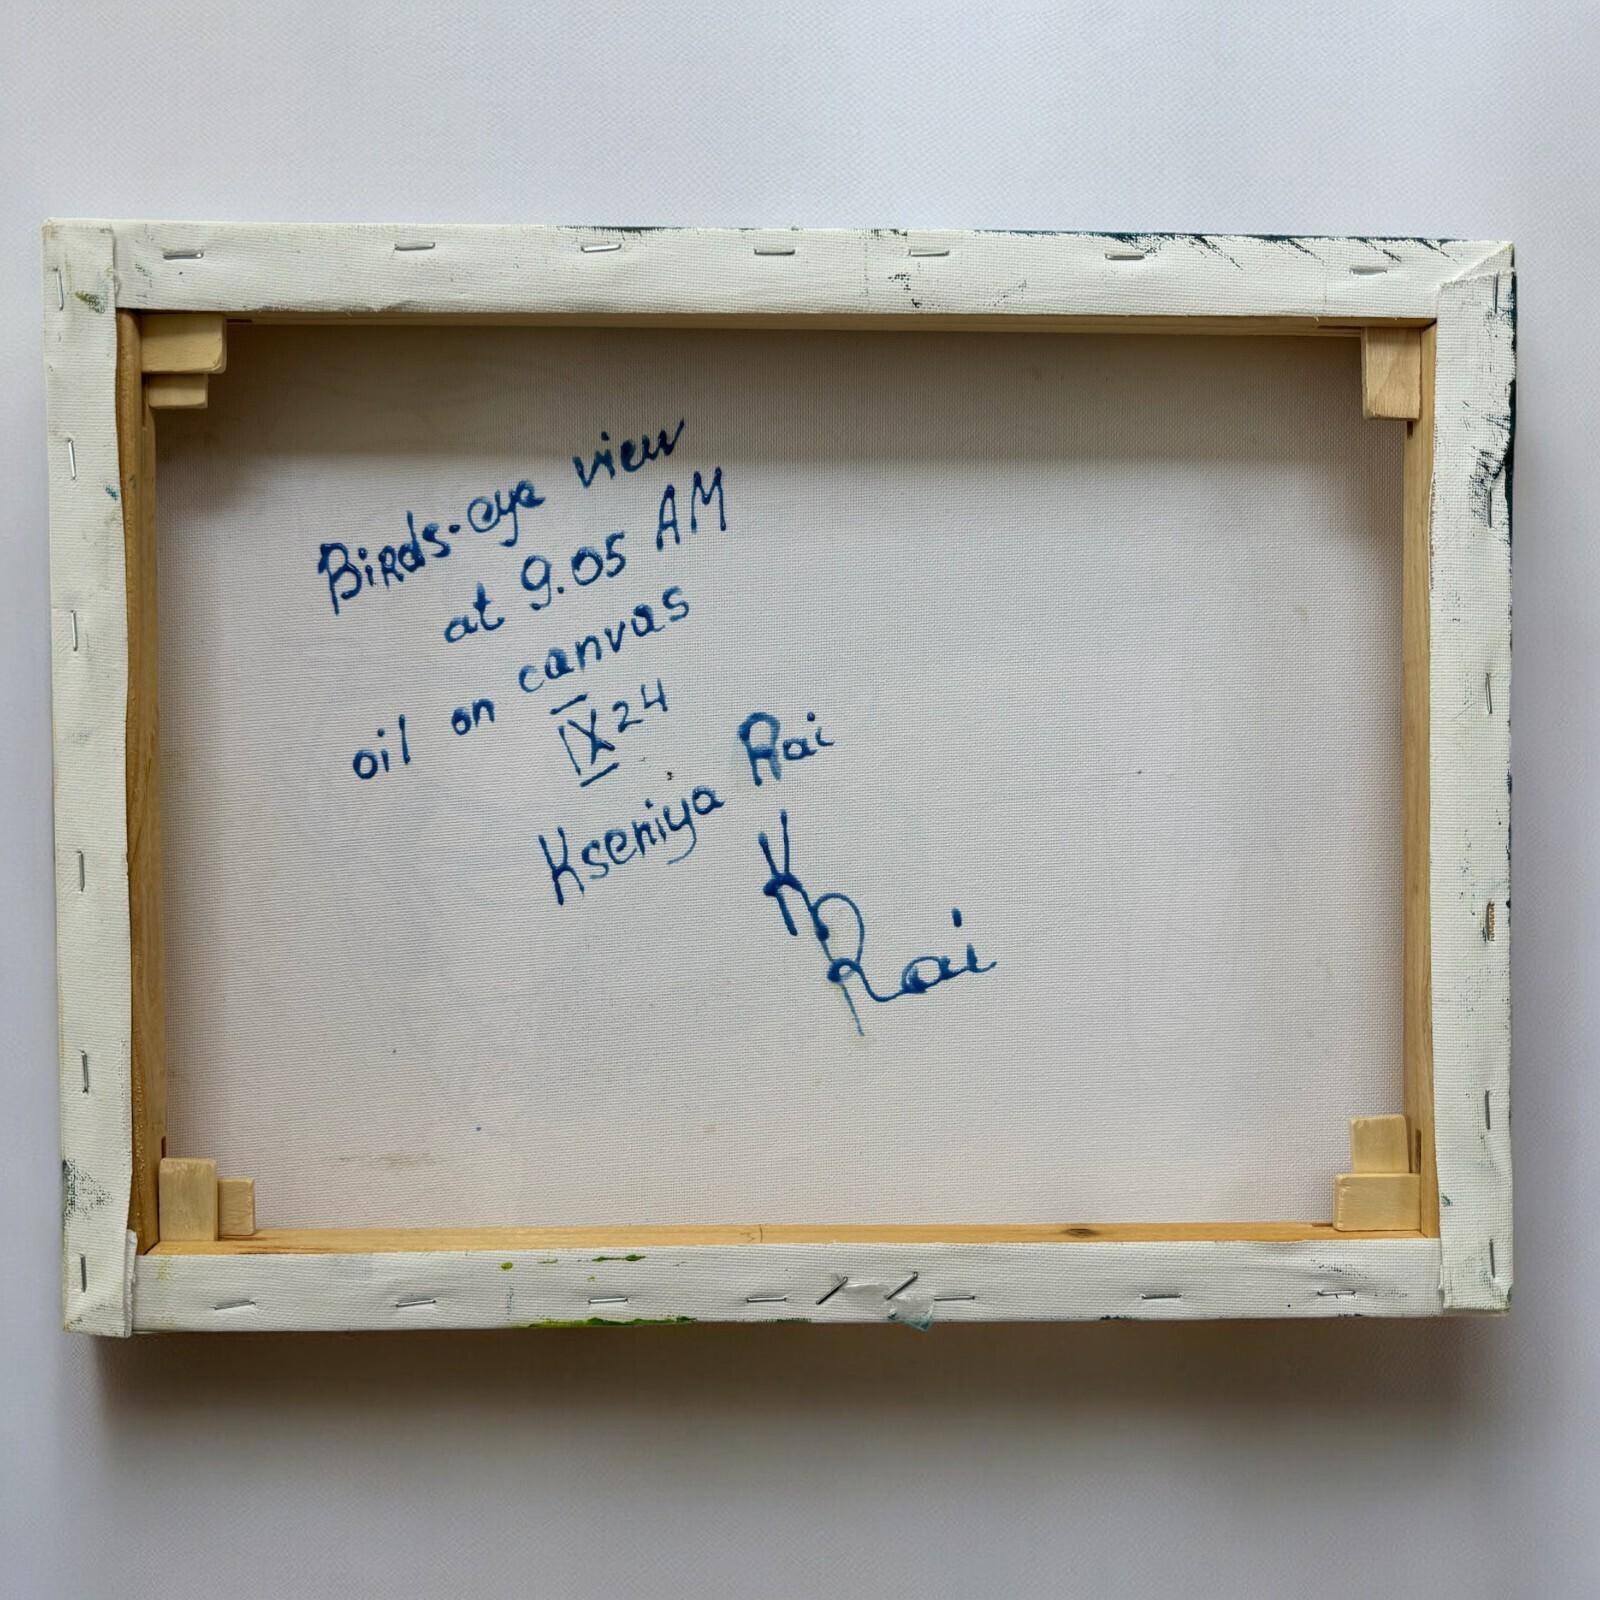 Birds-eye view
at 9.05 AM
oil on canvas
IX 24
Kseniya Rai
K Rai